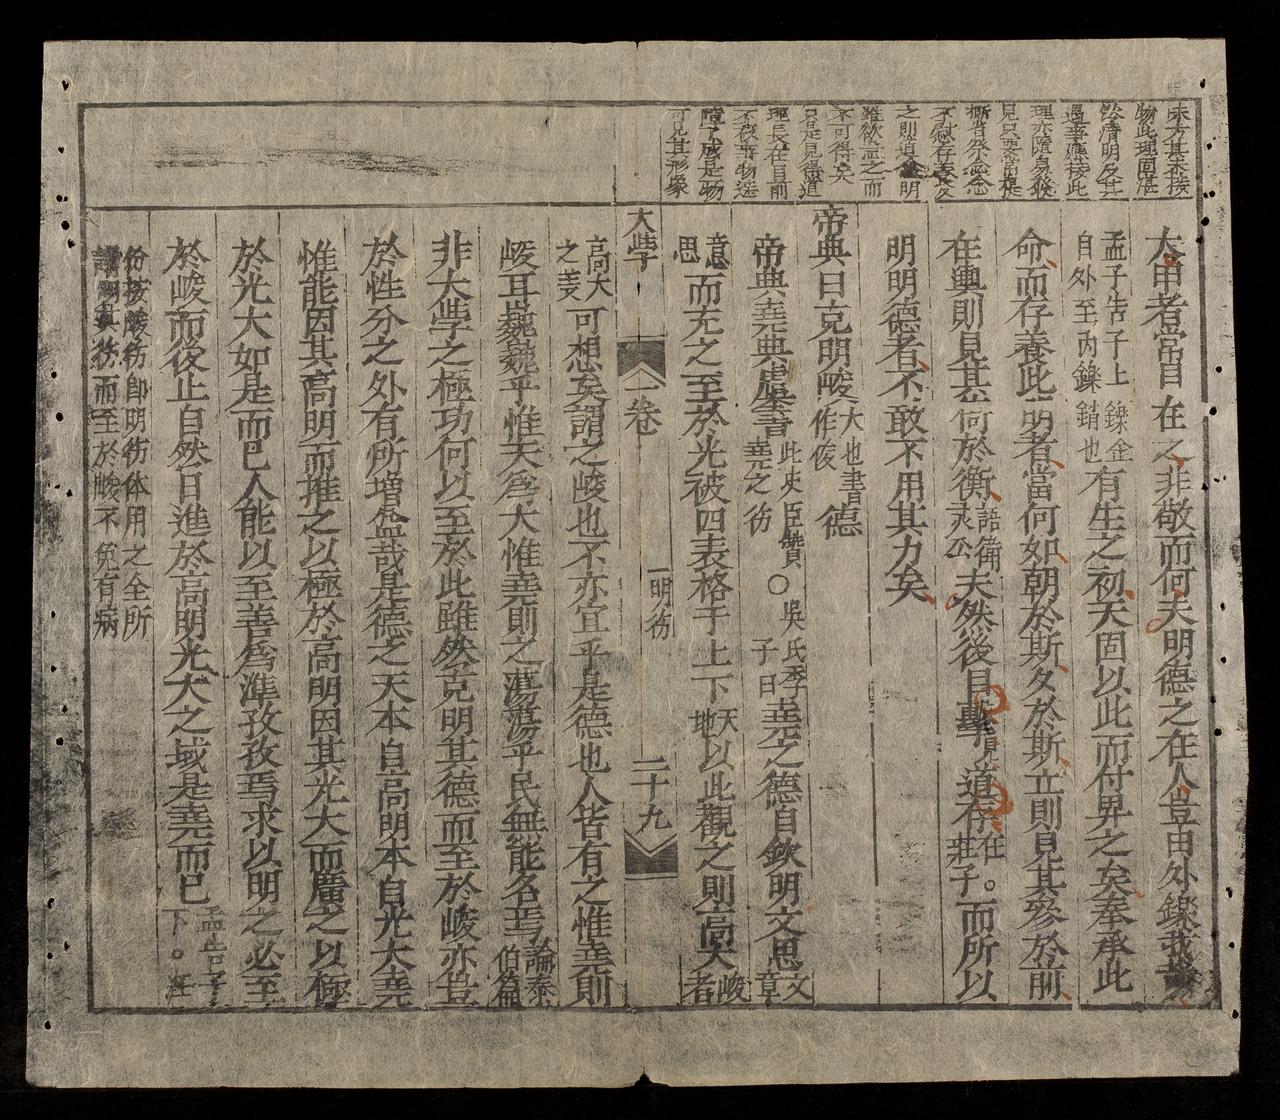 味方其未接
物此理固湛
然清明及其
遇事應接此
理亦隨身發
見只要常提
撕省察念念
不忘存養久
之則道益明
雖欲忘之而
不可得矣
只是見得道
理長在目前
不被事物遮
障了咸是物
可見其形象
大甲者常目在之非敬而何夫明德之在人豈由外鑠哉
孟子告子上
自外至內鑠
鑠企
銷也
有生之初天固以此而付畀之矣奉承此
命而存養此明者當何如朝於斯夕於斯立則見其參於前
在輿則見其倚於衡
語衛
灵公
夫然後目擊道存
在
莊子
而所以
明明德者不敢不用其力矣
帝典曰克明峻
大也書
作俊
德
帝典堯典虞書
此史臣贊
堯之彷
○吳氏季
子曰
堯之德自欽明文思
文
章
意
思
而充之至於光被四表格于上下
天
地
以此觀之則高矣
峻
者
大學
一卷
一明彷
二十九
高大
之義
可想矣謂之峻也不亦宜乎是德也人皆有之惟堯則
峻耳巍巍乎惟天爲大惟堯則之蕩蕩乎民無能名焉
論泰
伯篇
非大學之極功何以至於此雖然克明其德而至於峻亦豈
於性分之外有所增益哉是德之天本自高明本自光大堯
惟能因其高明而推之以極於高明因其光大而廣之以極
於光大如是而已人能以至善爲準孜孜焉求以明之必至
於峻而後止自然日進於高明光大之域是堯而已
孟告子
下
彷按峻彷即明彷体用之全所
謂明其彷而至於峻不免有病